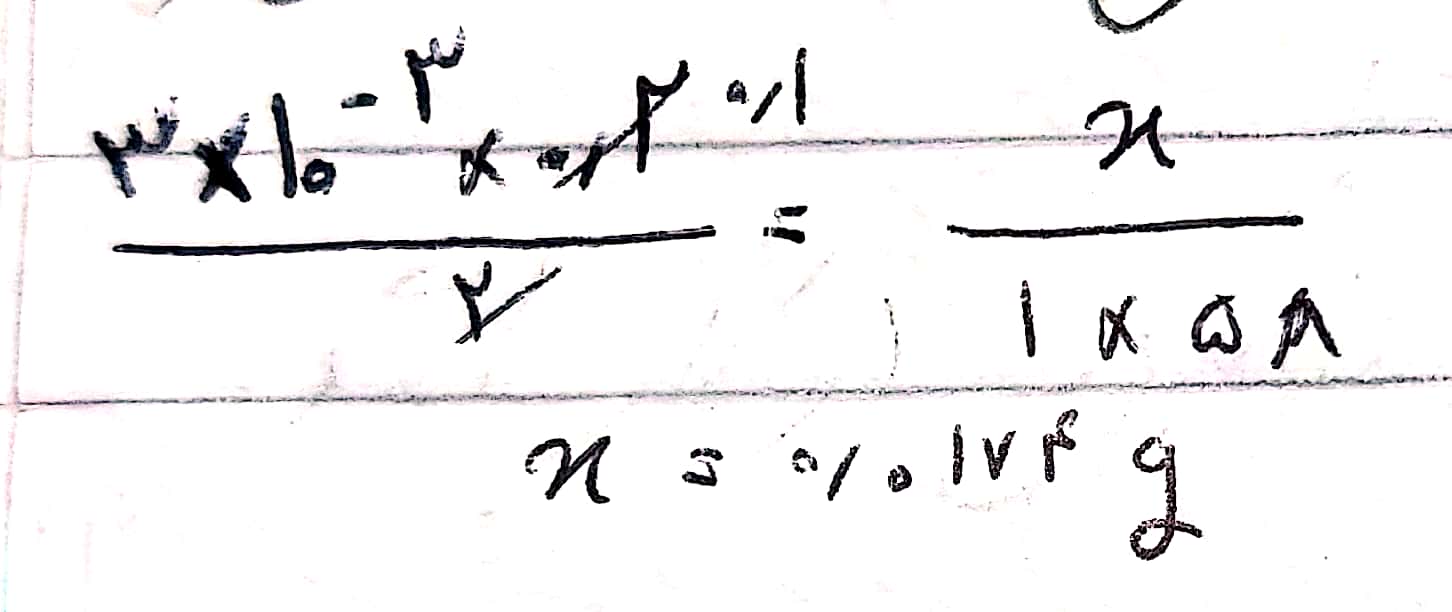 ۳×۱۰^-۳ × ۰٫۲ ۰٫۱ / ۲ = x / ۱×۵۸
x = ۰٫۰۱۷۴ g